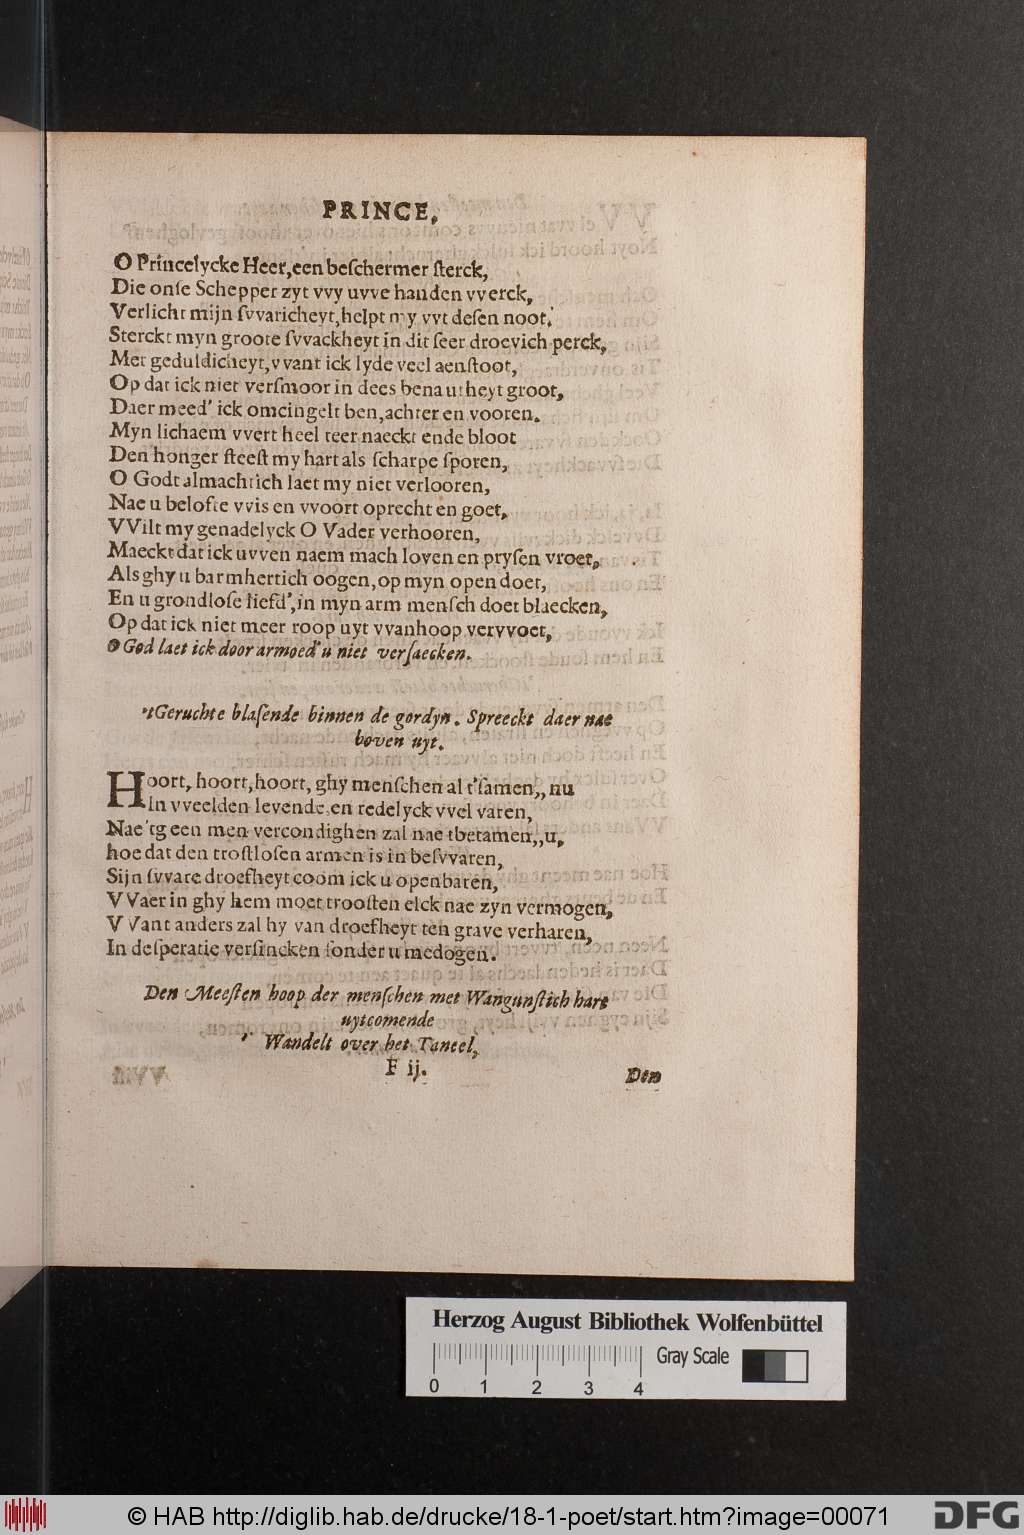 PRINCE,
O Princelycke Heer, een beſchermer ſterck,
Die onſe Schepper zyt vvy uvve handen vverck,
Verlicht mijn ſvvaricheyt, helpt my vvt deſen noot,
Sterckt myn groote ſvvackheyt in dit ſeer droevich perck,
Met geduldicheyt, vvant ick lyde veel aenſtoot,
Op dat ick niet verſmoor in dees benautheyt groot,
Daer meed' ick omcingelt ben, achter en vooren.
Myn lichaem vvert heel teer naeckt ende bloot
Den honger ſteeſt my hart als ſcharpe ſporen,
O Godt almachtich laet my niet verlooren,
Nae u belofte vvis en vvoort oprecht en goet,
VVilt my genadelyck O Vader verhooren,
Maeckt dat ick uvven naem mach loven en pryſen vroet,
Als ghy u barmhertich oogen, op myn open doet,
En u grondloſe liefd', in myn arm menſch doet blaecken,
Op dat ick niet meer roop uyt vvanhoop vervvoet,
O God laet ick door armoed' u niet verſaecken.
'tGeruchte blaſende binnen de gordyn. Spreeckt daer nae
boven uyt.
Hoort, hoort, hoort, ghy menſchen al t'ſamen,, nu
In vveelden levende en redelyck vvel varen,
Nae 'tg een men vercondighen zal nae tbetamen,, u,
hoe dat den troſtloſen armen is in beſvvaren,
Sijn ſvvare droefheyt coom ick u openbaren,
VVaer in ghy hem moet trooſten elck nae zyn vermogen,
VVant anders zal hy van droefheyt ten grave verharen,
In deſperatie verſincken ſonder u medogen.
Den Meeſten hoop der menſchen met Wangunſtich hart
uytcomende
Wandelt over het Taneel,
F ij.
Den
Herzog August Bibliothek Wolfenbüttel
Gray Scale
0 1 2 3 4
© HAB http://diglib.hab.de/drucke/18-1-poet/start.htm?image=00071
DFG